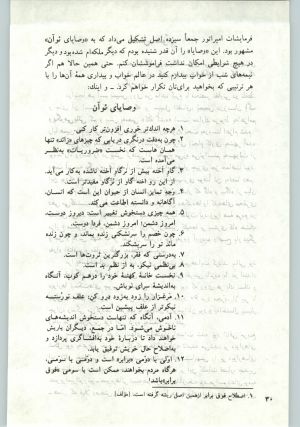 فرمایشات امپراتور جمعاً سیزده اصل تشکیل می‌داد که به «وصایای ثوآن»
مشهور بود. این «وصایا» را آن قدر شنیده بودم که دیگر ملکه‌ام شده بود و دیگر
در هیچ شرایطی امکان نداشت فراموششان کنم. حتی همین حالا هم اگر
نیمه‌های شب از خواب بیدارم کنید در عالم خواب و بیداری همهٔ آن‌ها را با
هر ترتیبی که بخواهید برای‌تان تکرار خواهم کرد. ـ و اینک:
وصایای ثوآن
۱. هرچه اندادتر خوری افزون‌تر کار کنی.
۲. چون به‌دقت درنگری دریابی که چیزهای «زائد» تنها
همان هاست که نخست «ضروریات» به‌نظر
می‌آمده است.
۳. گاو اخته بیش از نرگاو اخته ناشده به‌کار می‌آید.
از این رو اخته گاو از نرگاو مفیدتر است.
۴. وجه تمایز انسان از حیوان این است که انسان،
آگاهانه و دانسته اطاعت می‌کند.
۵. همه چیزی دستخوش تغییر است: دیروز دوست،
امروز دشمن؛ امروز دشمن، فردا دوست.
۶. چون طعم را سرنشکنی زنده بماند، و چون زنده
ماند تو را سربشکند.
۷. به‌درستی که فقر، بزرگترین ثروت‌ها است.
۸. بی‌نظمی نیکو، به از نظم بد است.
۹. نخست خانهٔ کهنهٔ خود را درهم کوب، آنگاه
به‌اندیشهٔ سرای نو باش.
۱۰. مرغزار را زود به‌زود درو کن: علف نورسته
نیکوتر از علف پیشین است.
۱۱. آدمی، آنگاه که تنهاست دستخوش اندیشه‌های
ناخوش می‌شود. اما در جمع، دیگران یاریش
خواهند داد تا دربارهٔ خود به‌افشاگری پردازد و
به‌اصلاح حال خویش توفیق یابد.
۱۲. اولی با دومی برابر است و دومی با سومی.
هرگاه مردم بخواهند، ممکن است با سومی «فوق
برابر» باشد!
۱. اصطلاح فوق برابر ازهمین اصل ریشه گرفته است. (مؤلف)
۳۰